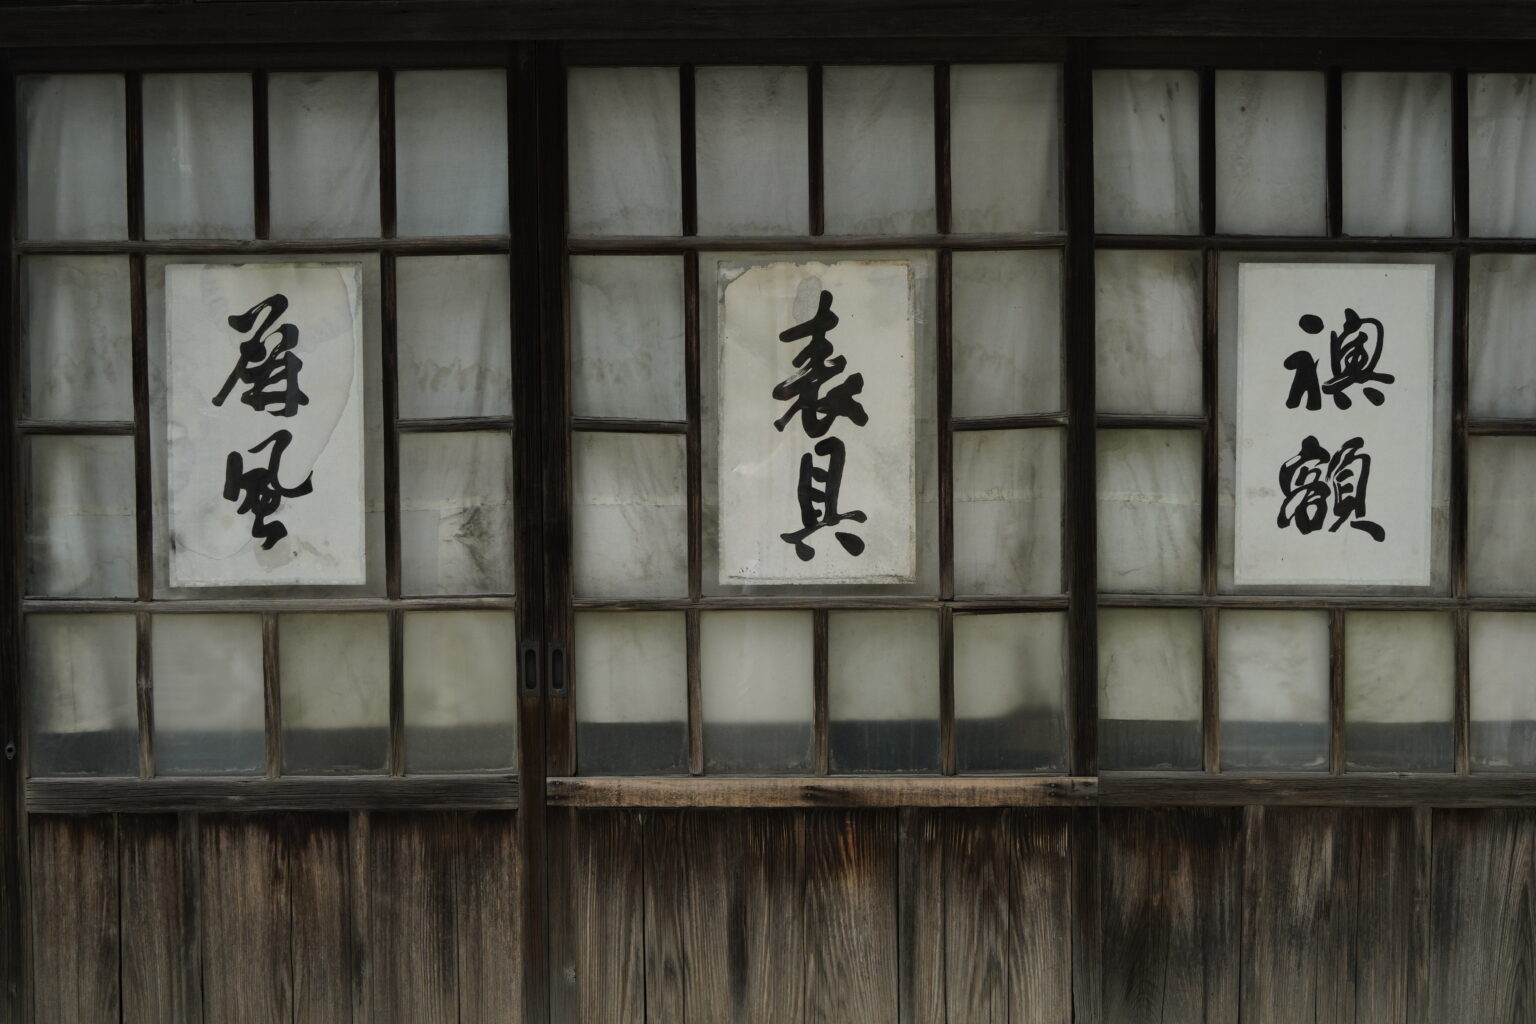 屏風
表具
襖額